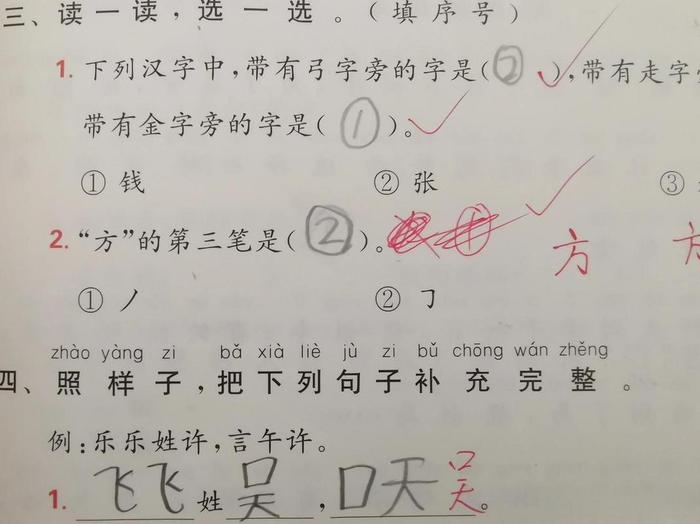 三、读一读，选一选。（填序号）
1. 下列汉字中，带有弓字旁的字是（②），带有走字
带有金字旁的字是（①）。
①钱 ②张 ③
2.“方”的第三笔是（②）。
方 方
①丿 ②㇆
zhào yàng zi bǎ xià liè jù zi bǔ chōng wán zhěng
四、照样子，把下列句子补充完整。
例：乐乐姓许，言午许。
1. 飞飞姓吴，口天吴。